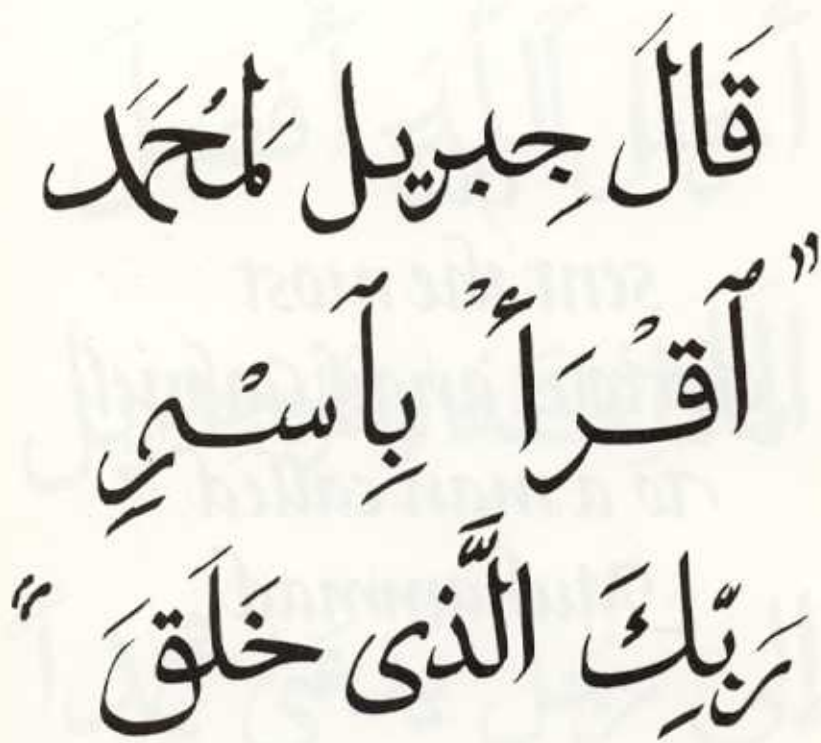 قَالَ جِبريل لمُحَمَد
"ٱقْرَأْ بِٱسْمِ
رَبِّكَ الَّذى خَلَقَ"